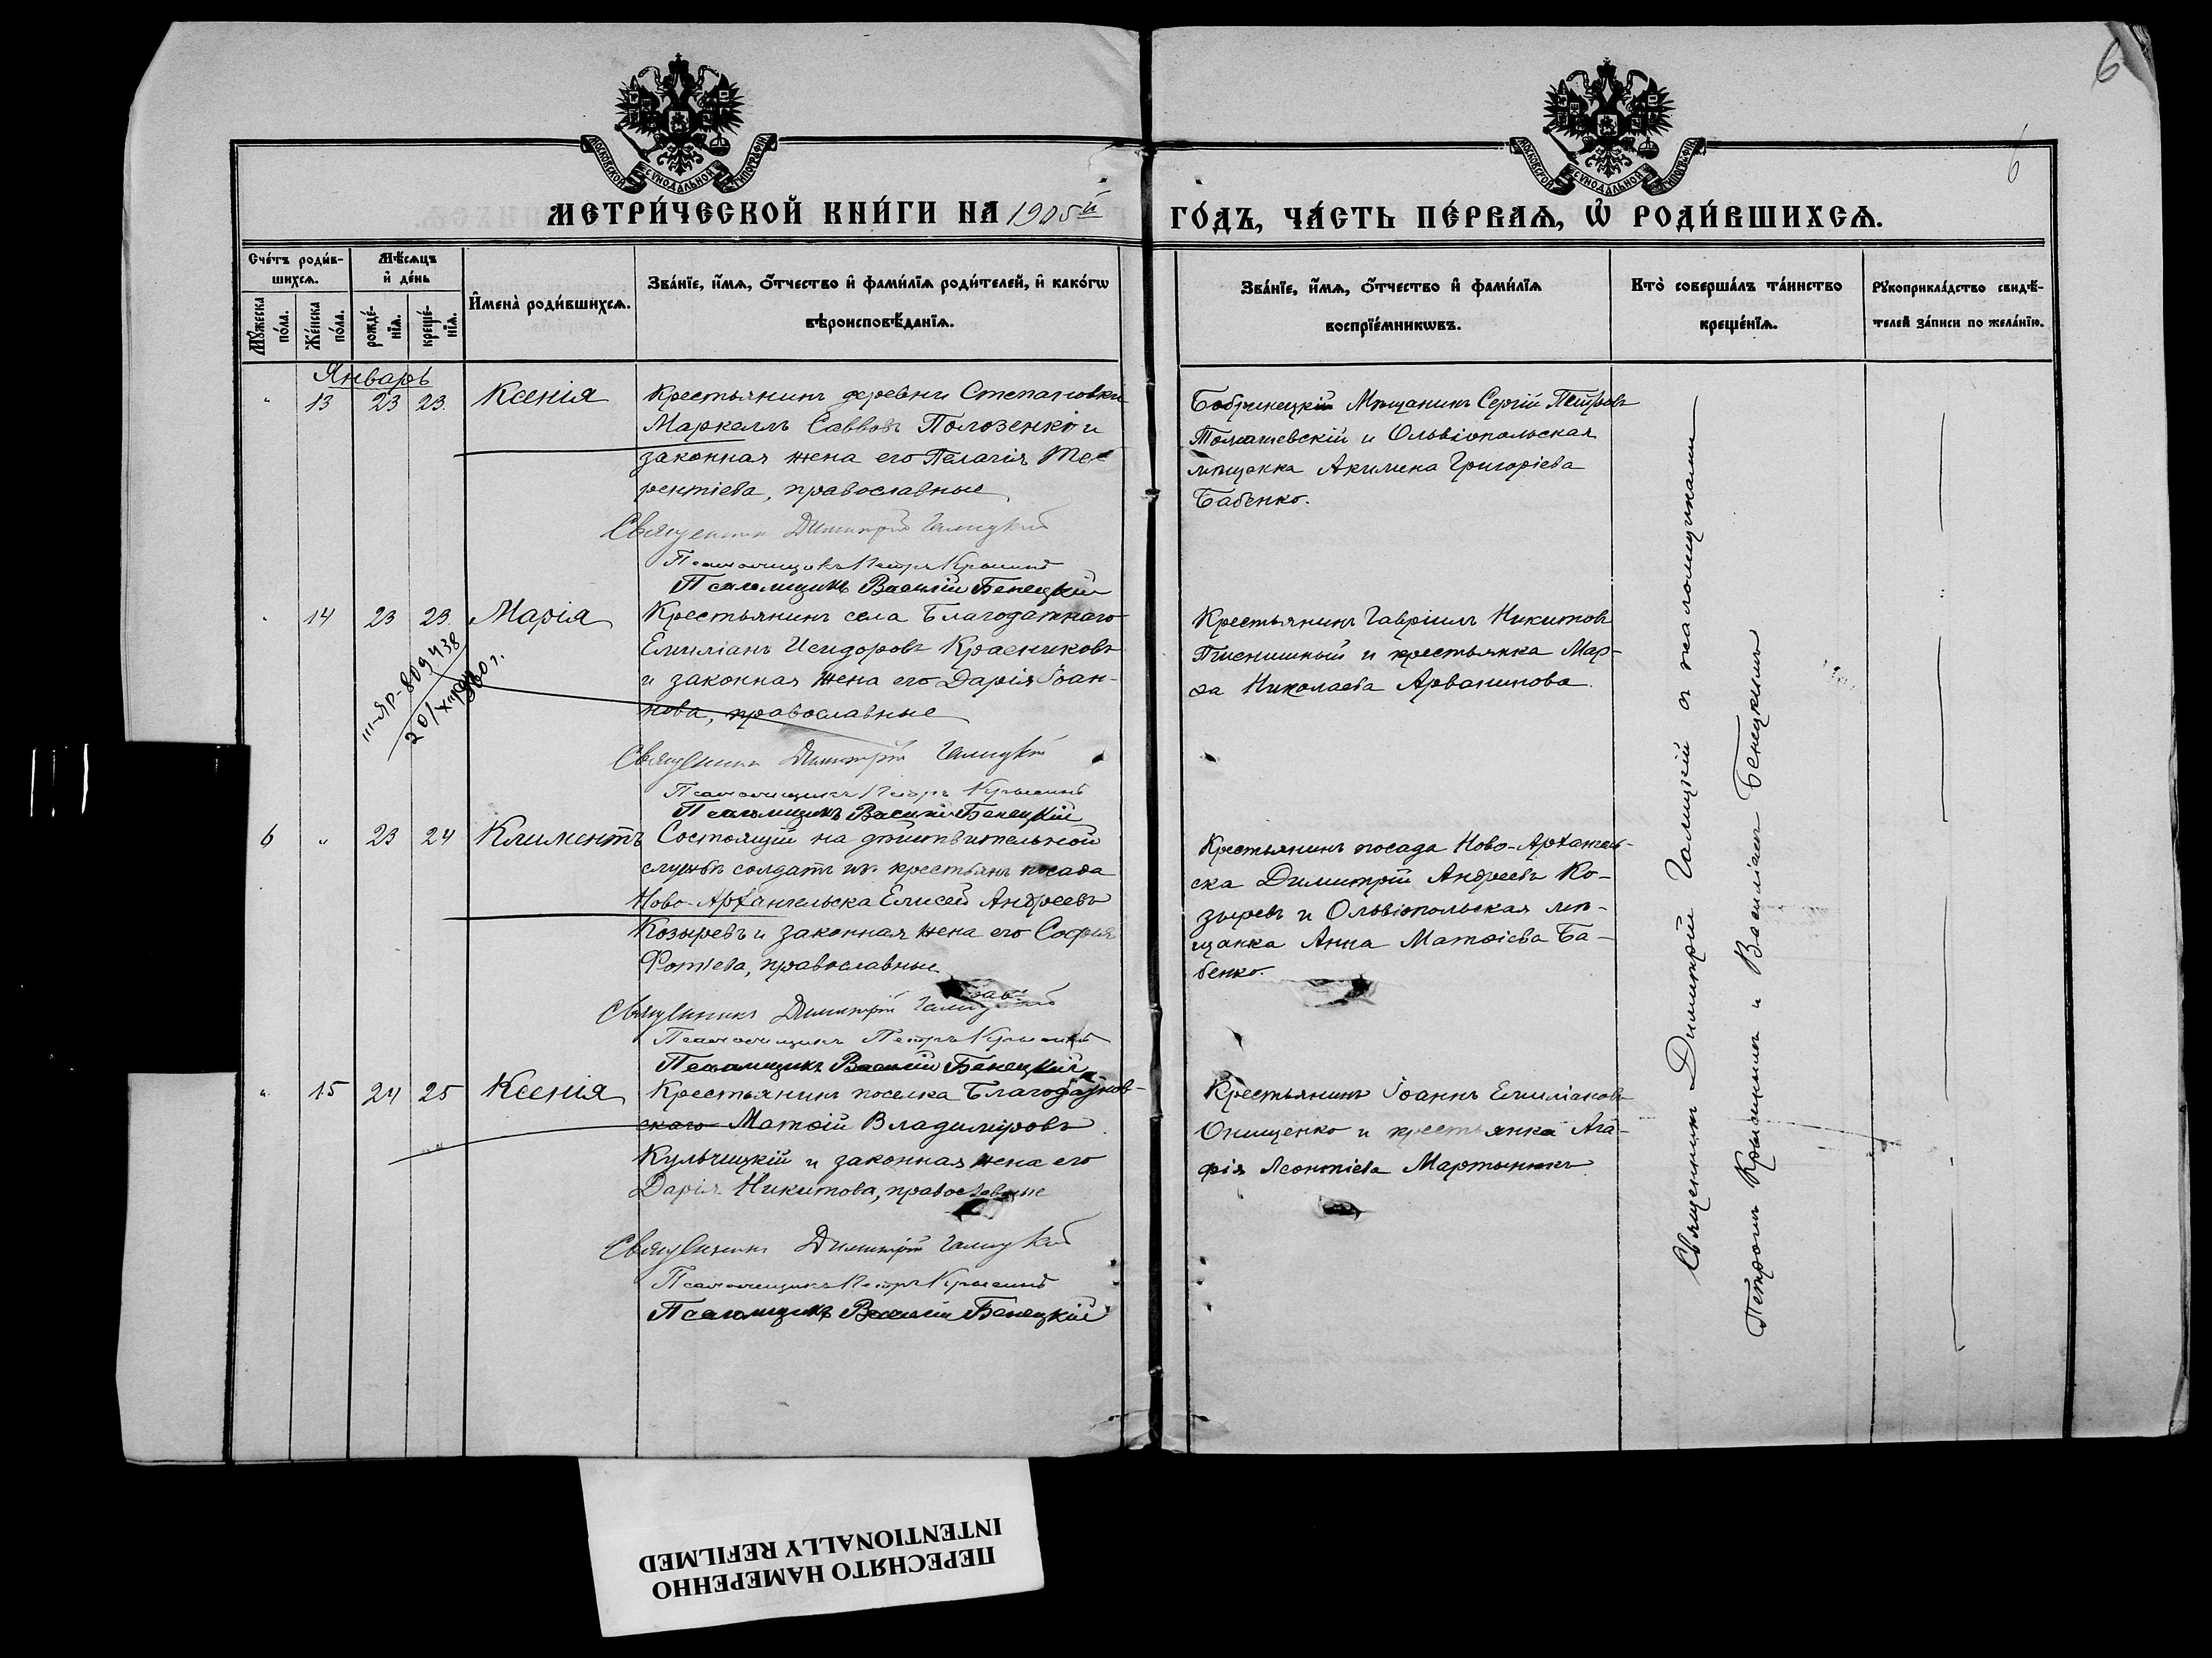 6
6
МОСКОВСКОЙ СѴНОДАЛЬНОЙ ТИПОГРАФІИ
МОСКОВСКОЙ СѴНОДАЛЬНОЙ ТИПОГРАФІИ
МЕТРИ́ЧЕСКОЙ КНИ́ГИ НА 1905й
ГО́ДЪ, ЧА́СТЬ ПЕ́РВАѦ, Ѡ҆ РОДИ́ВШИХСѦ.
Сче́тъ роди́в-
шихсѧ.
Мѣ́сѧцъ
и҆ де́нь
Мꙋ́жеска
по́ла.
Же́нска
по́ла.
рожде́-
нїѧ.
креще́-
нїѧ.
И҆мена̀ роди́вшихсѧ.
Зва́нїе, и҆́мѧ, ѻ҆́тчество и҆ фами́лїѧ роди́телей, и҆ како́гѡ
вѣроисповѣ́данїѧ.
Зва́нїе, и҆́мѧ, ѻ҆́тчество и҆ фами́лїѧ
воспрїе́мникѡвъ.
Кто̀ соверша́лъ та́инство
креще́нїѧ.
Рꙋкоприкла́дство свидѣ́-
телей за́писи по жела́нїю.
Январь
" 13 23 23. Ксенія
Крестьянинъ деревни Степановки
Маркеллъ Саввовъ Полозенко и
законная жена его Пелагія Те-
рентіева, православные
Священникъ Димитрій Галицкій
Псаломщикъ Петръ Крысинъ
Псаломщикъ Василій Бенецкій
Бобринецкій Мѣщанинъ Сергій Петровъ
Томашевскій и Ольвіопольская
мѣщанка Акилина Григоріева
Бабенко.
" 14 23 23. Марія
Крестьянинъ села Благодатнаго
Емиліанъ Исидоровъ Красниковъ
и законная жена его Дарія Іоан-
нова, православные
Священникъ Димитрій Галицкій
Псаломщикъ Петръ Крысинъ
Псаломщикъ Василій Бенецкій
III-ЯР-809438
Крестьянинъ Гавріилъ Никитовъ
Пшенишный и крестьянка Мар-
ѳа Николаева Арванинова.
6 " 23 24 Климентъ
Состоящій на дѣйствительной
службѣ солдатъ изъ крестьянъ посада
Ново-Архангельска Елисей Андреевъ
Козыревъ и законная жена его Софія
Фотіева, православные.
Священникъ Димитрій Галицкій
Псаломщикъ Петръ Крысинъ
Псаломщикъ Василій Бенецкій
Крестьянинъ посада Ново-Архангель-
ска Димитрій Андреевъ Ко-
зыревъ и Ольвіопольская мѣ-
щанка Анна Матѳіева Ба-
бенко.
" 15 24 25 Ксенія
Крестьянинъ поселка Благодатнов-
скаго Матѳій Владиміровъ
Кульчицкій и законная жена его
Дарія Никитова, православные
Священникъ Димитрій Галицкій
Псаломщикъ Петръ Крысинъ
Псаломщикъ Василій Бенецкій
Крестьянинъ Іоаннъ Емиліановъ
Онищенко и крестьянка Ага-
фія Леонтіева Мартынюкъ
Священникъ Димитрій Галицкій съ псаломщиками
Петромъ Крысинымъ и Василіемъ Бенецкимъ
ПЕРЕСНЯТО НАМЕРЕННО
INTENTIONALLY REFILMED